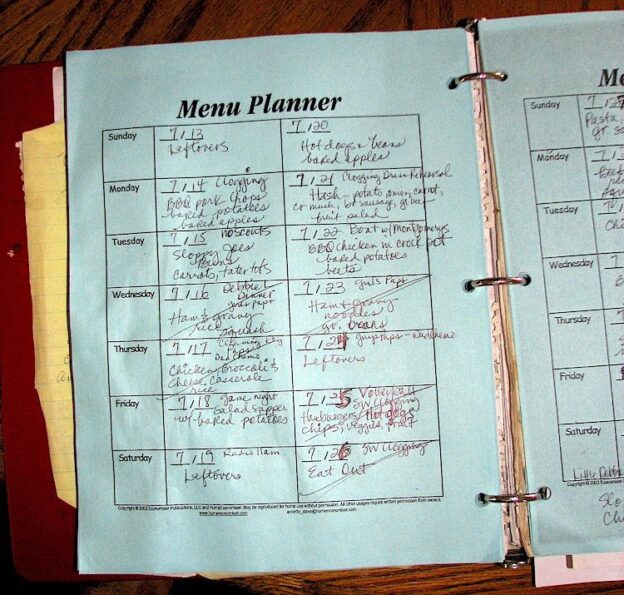 Menu Planner
Sunday
7/13
Leftovers
7/20
Hot dogs n beans
baked apples
Monday
7/14 Clogging
BBQ pork chops
baked potatoes
baked apples
7/21 Clogging Dress Rehearsal
Hash - potato, onion, carrot,
fruit salad
Tuesday
7/15 no scouts
Sloppy Joes
Beans
carrots, tater tots
7/22 Boat w/Montgomerys
BBQ Chicken in crock pot
baked potatoes
beets
Wednesday
7/16 Debbie L
Dinner
Ham & gravy
rice
squash
7/23
Ham & gravy
noodles
gr. beans
Thursday
7/17
Chicken Broccoli &
Cheese Casserole
rice
7/24
Leftovers
Friday
7/18 game night
Salad supper
w/ baked potatoes
7/25 Volleyball
SW Clogging
Hamburgers/Hot dogs
chips, veggies, fruit
Saturday
7/19 Radio 11am
Leftovers
7/26 SW Clogging
Eat Out
Copyright © 2003 Economiser Publications, LLC and HomeEconomiser. May be reproduced for home use without permission. All other usages require written permission from owners.
www.homeeconomiser.com
Me
Sunday
Pasta,
Monday
Tuesday
Wednesday
Thursday
Friday
Saturday
Little Debbie